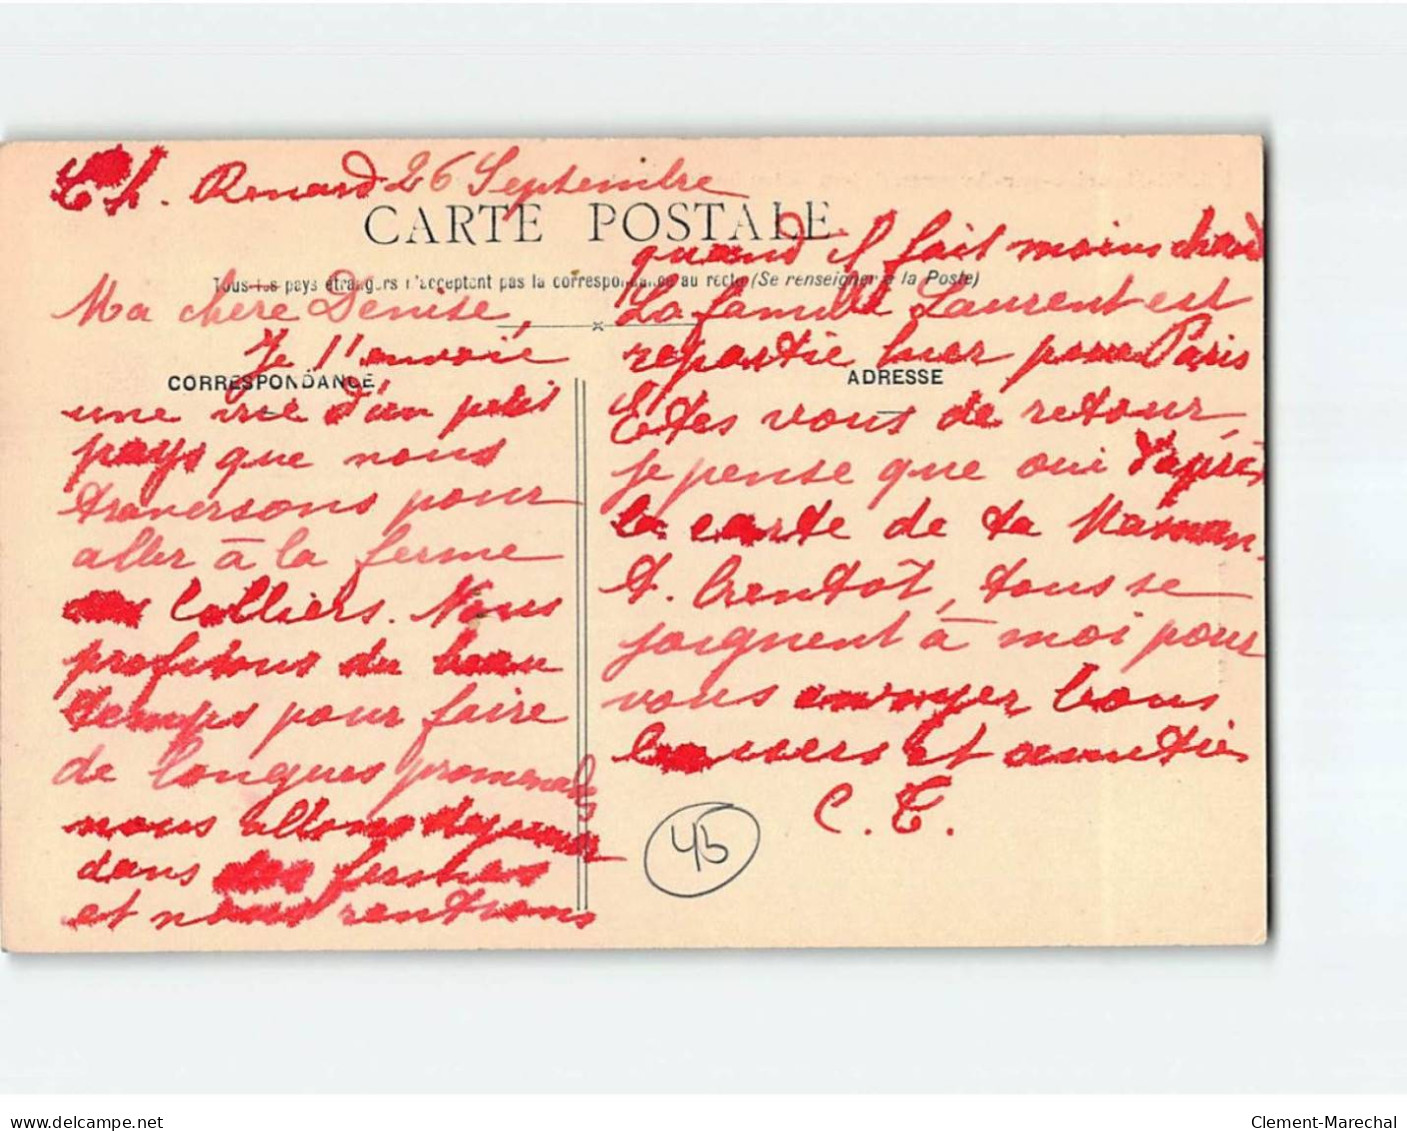 Ch. Renard 26 Septembre
CARTE POSTALE
Tous les pays étrangers n'acceptent pas la correspondance au recto (Se renseigner à la Poste)
CORRESPONDANCE
ADRESSE
Ma chère Denise,
Je t'envoie
une vue d'un petit
pays que nous
traversons pour
aller à la ferme
des Colliers. Nous
profitons du beau
temps pour faire
de longues promenades
nous allons déjeuner
dans des fermes
et nous rentrons
quand il fait moins chaud
La famille Laurent est
repartie hier pour Paris
Etes vous de retour,
je pense que oui d'après
la carte de ta Maman.
A bientôt, tous se
joignent à moi pour
vous envoyer bons
baisers et amitiés
C. T.
45
delcampe.net
Clement-Marechal